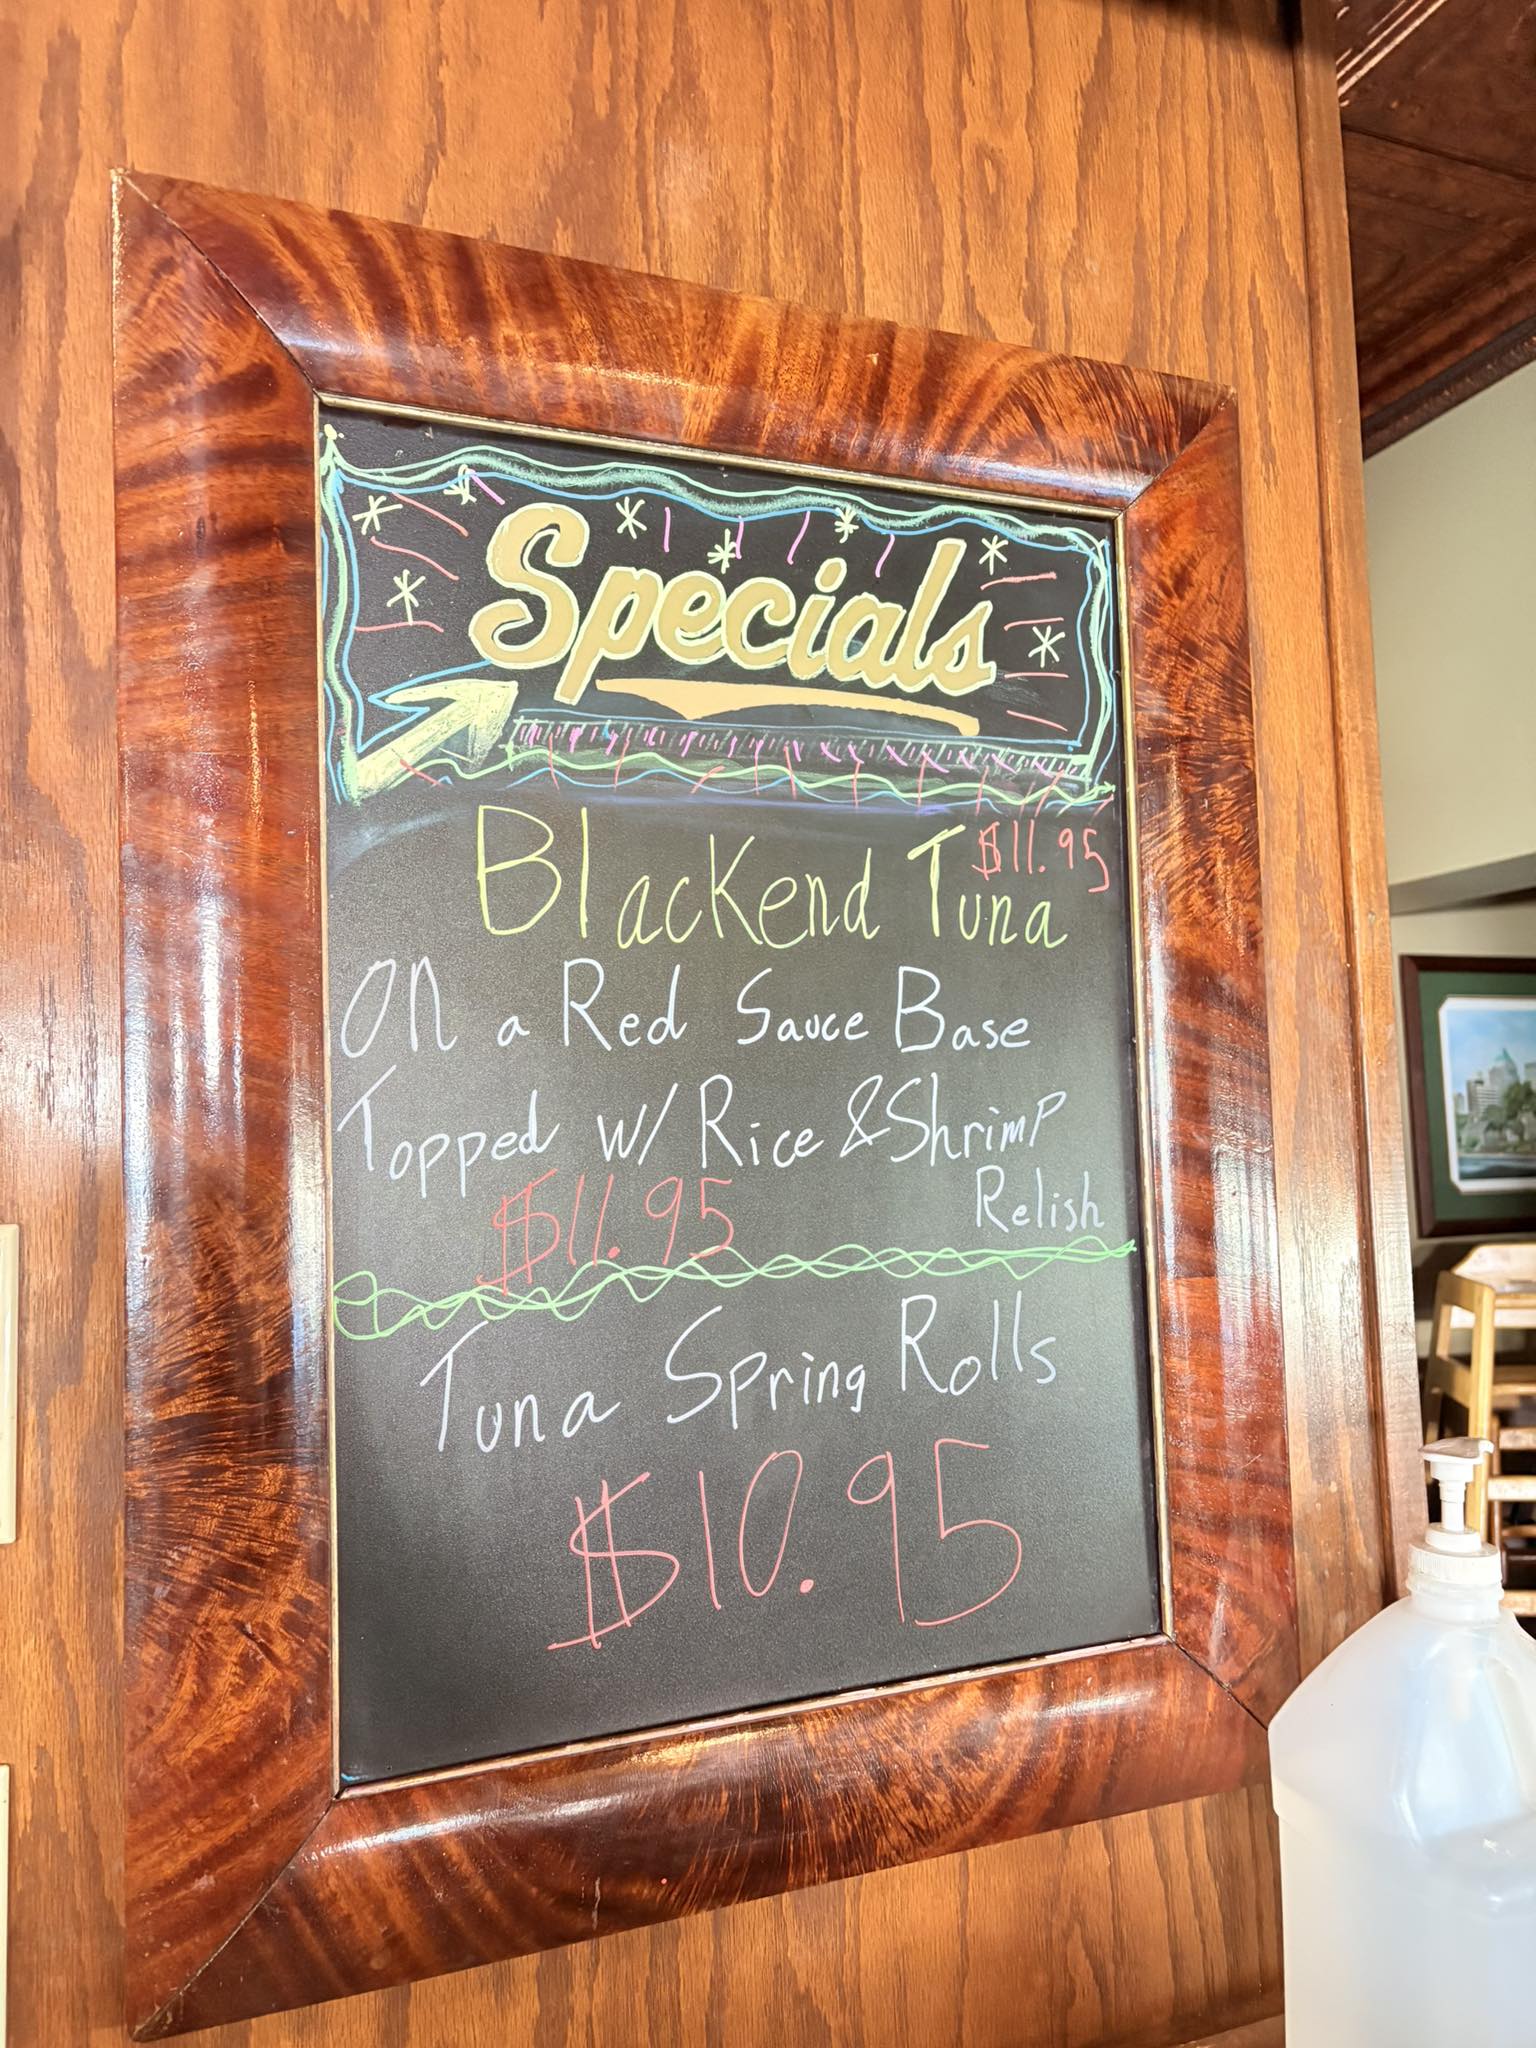 Specials
$11.95
Blackend Tuna
On a Red Sauce Base
Topped w/ Rice & Shrimp
Relish
$11.95
Tuna Spring Rolls
$10.95